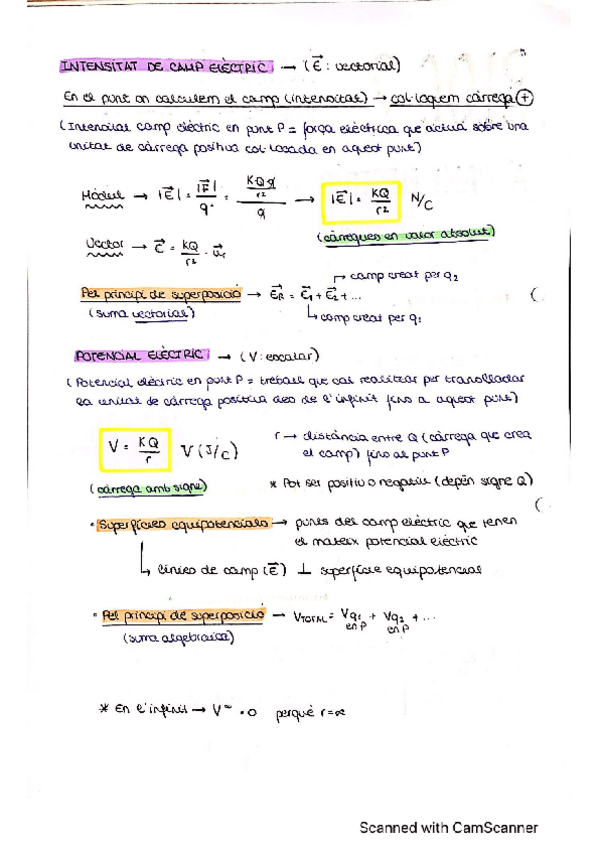 INTENSITAT DE CAMP ELÈCTRIC → (E⃗ : vectorial)
En el punt on calculem el camp (intensitat) → col·loquem càrrega (+)
(Intensitat camp elèctric en punt P = força elèctrica que actua sobre una
unitat de càrrega positiva col·locada en aquest punt)
Mòdul → |E⃗| = |F⃗|/q = (KQq/r²)/q → |E⃗| = KQ/r² N/C
(càrregues en valor absolut)
Vector → E⃗ = KQ/r² · u⃗r
camp creat per q2
Pel principi de superposició → E⃗R = E⃗1 + E⃗2 + ...
(suma vectorial)
camp creat per q1
POTENCIAL ELÈCTRIC → (V: escalar)
(Potencial elèctric en punt P = treball que cal realitzar per traslladar
la unitat de càrrega positiva des de l'infinit fins a aquest punt)
V = KQ/r V (J/C)
r → distància entre Q (càrrega que crea
el camp) fins al punt P
(càrrega amb signe)
* Pot ser positiu o negatiu (depèn signe Q)
• Superfícies equipotencials → punts del camp elèctric que tenen
el mateix potencial elèctric
línies de camp (E⃗) ⊥ superfície equipotencial
• Pel principi de superposició → VTOTAL = Vq1 en P + Vq2 en P + ...
(suma algebraica)
* En l'infinit → V∞ = 0 perquè r=∞
Scanned with CamScanner